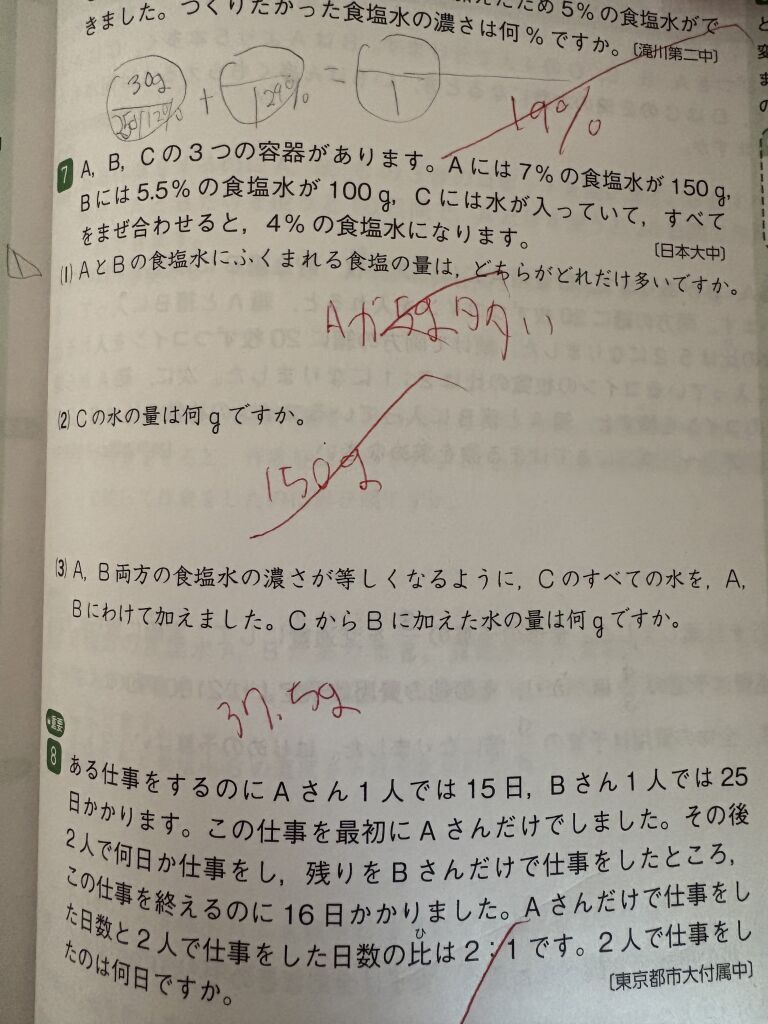 ため5%の食塩水がで
きました。つくりたかった食塩水の濃さは何%ですか。〔滝川第二中〕
30g
250/12% + 129% = 1
19%
7 A, B, Cの3つの容器があります。Aには7%の食塩水が150g,
Bには5.5%の食塩水が100g, Cには水が入っていて, すべて
をまぜ合わせると, 4%の食塩水になります。
〔日本大中〕
(1) AとBの食塩水にふくまれる食塩の量は, どちらがどれだけ多いですか。
Aが5g多い
(2) Cの水の量は何gですか。
150g
(3) A, B両方の食塩水の濃さが等しくなるように, Cのすべての水を, A,
Bにわけて加えました。CからBに加えた水の量は何gですか。
37.5g
重要
8 ある仕事をするのにAさん1人では15日, Bさん1人では25
日かかります。この仕事を最初にAさんだけでしました。その後
2人で何日か仕事をし, 残りをBさんだけで仕事をしたところ,
この仕事を終えるのに16日かかりました。Aさんだけで仕事をし
た日数と2人で仕事をした日数の比は2:1です。2人で仕事をし
たのは何日ですか。
〔東京都市大付属中〕